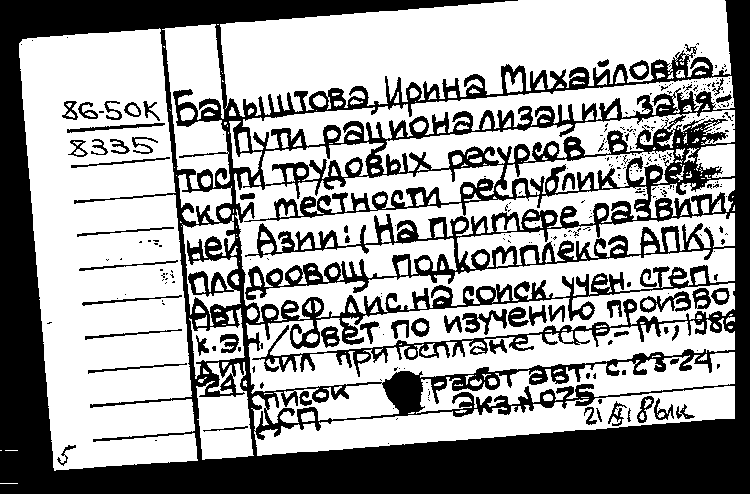 86-50К
8335
Бадыштова, Ирина Михайловна.
Пути рационализации заня-
тости трудовых ресурсов в сель-
ской местности республик Сред-
ней Азии: (На примере развития
плодоовощ. подкомплекса АПК):
Автореф. дис. на соиск. учен. степ.
к.э.н. / Совет по изучению произво-
дит. сил при Госплане СССР.- М., 1986
24с.
Список работ авт.: с. 23-24.
ДСП. Экз.№075.
5